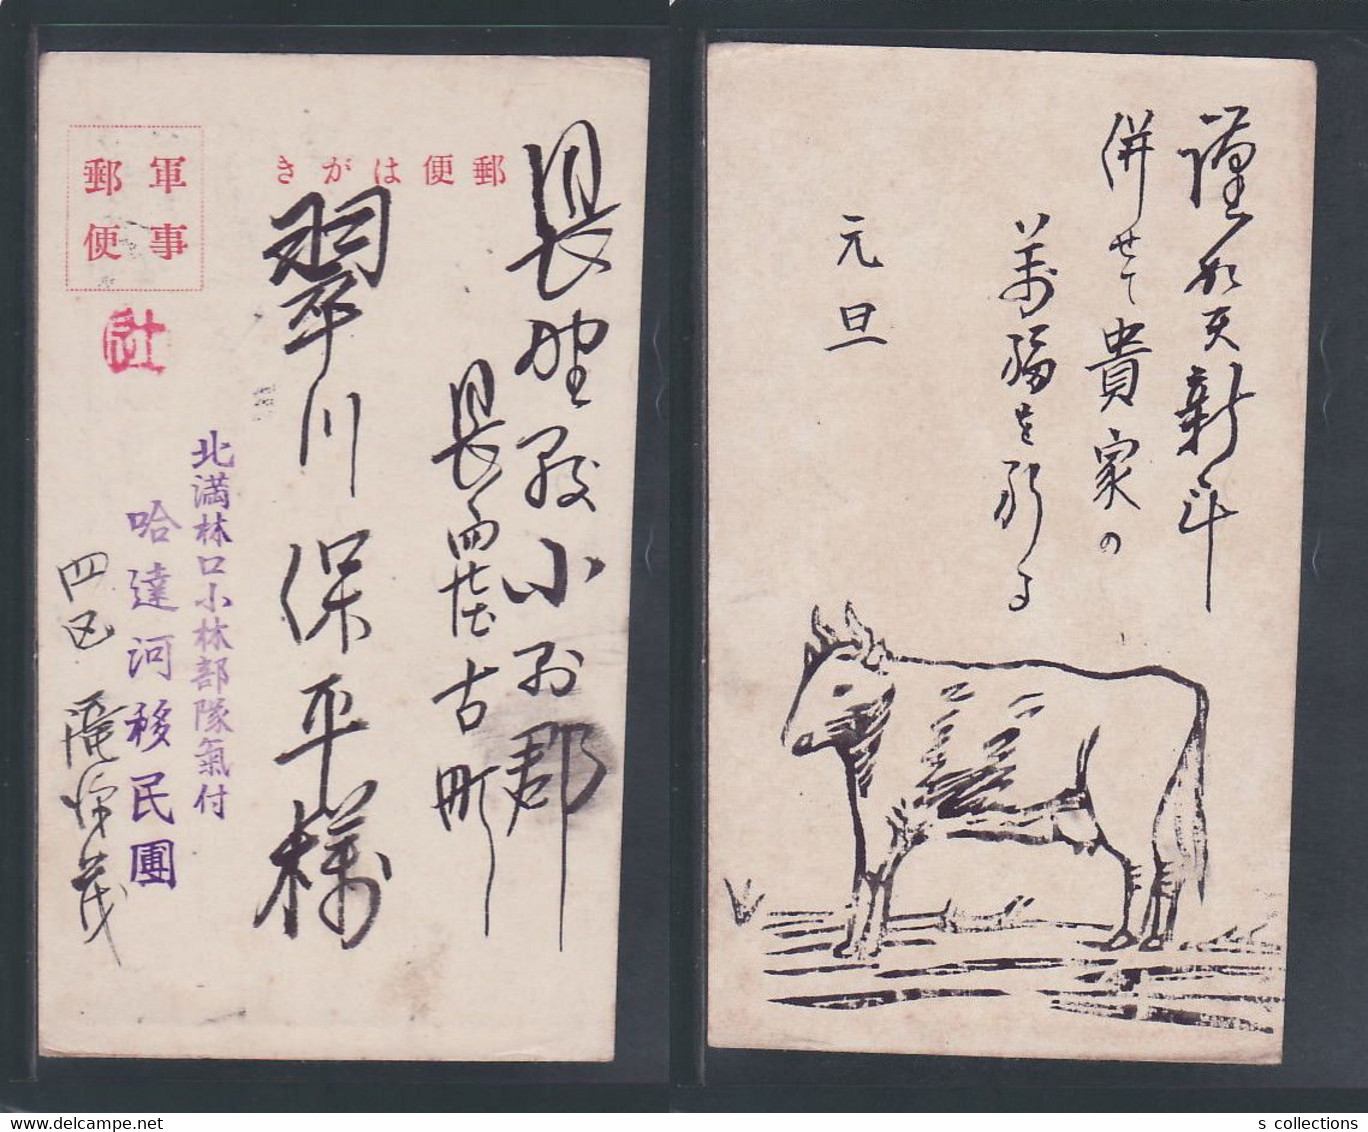 郵便はがき
軍事
郵便
長野縣小縣郡
長
古町
翠川保平様
北満林口小林部隊氣付
哈達河移民團
四区
謹
新年
併せて貴家の
萬福を祈る
元旦
s collections